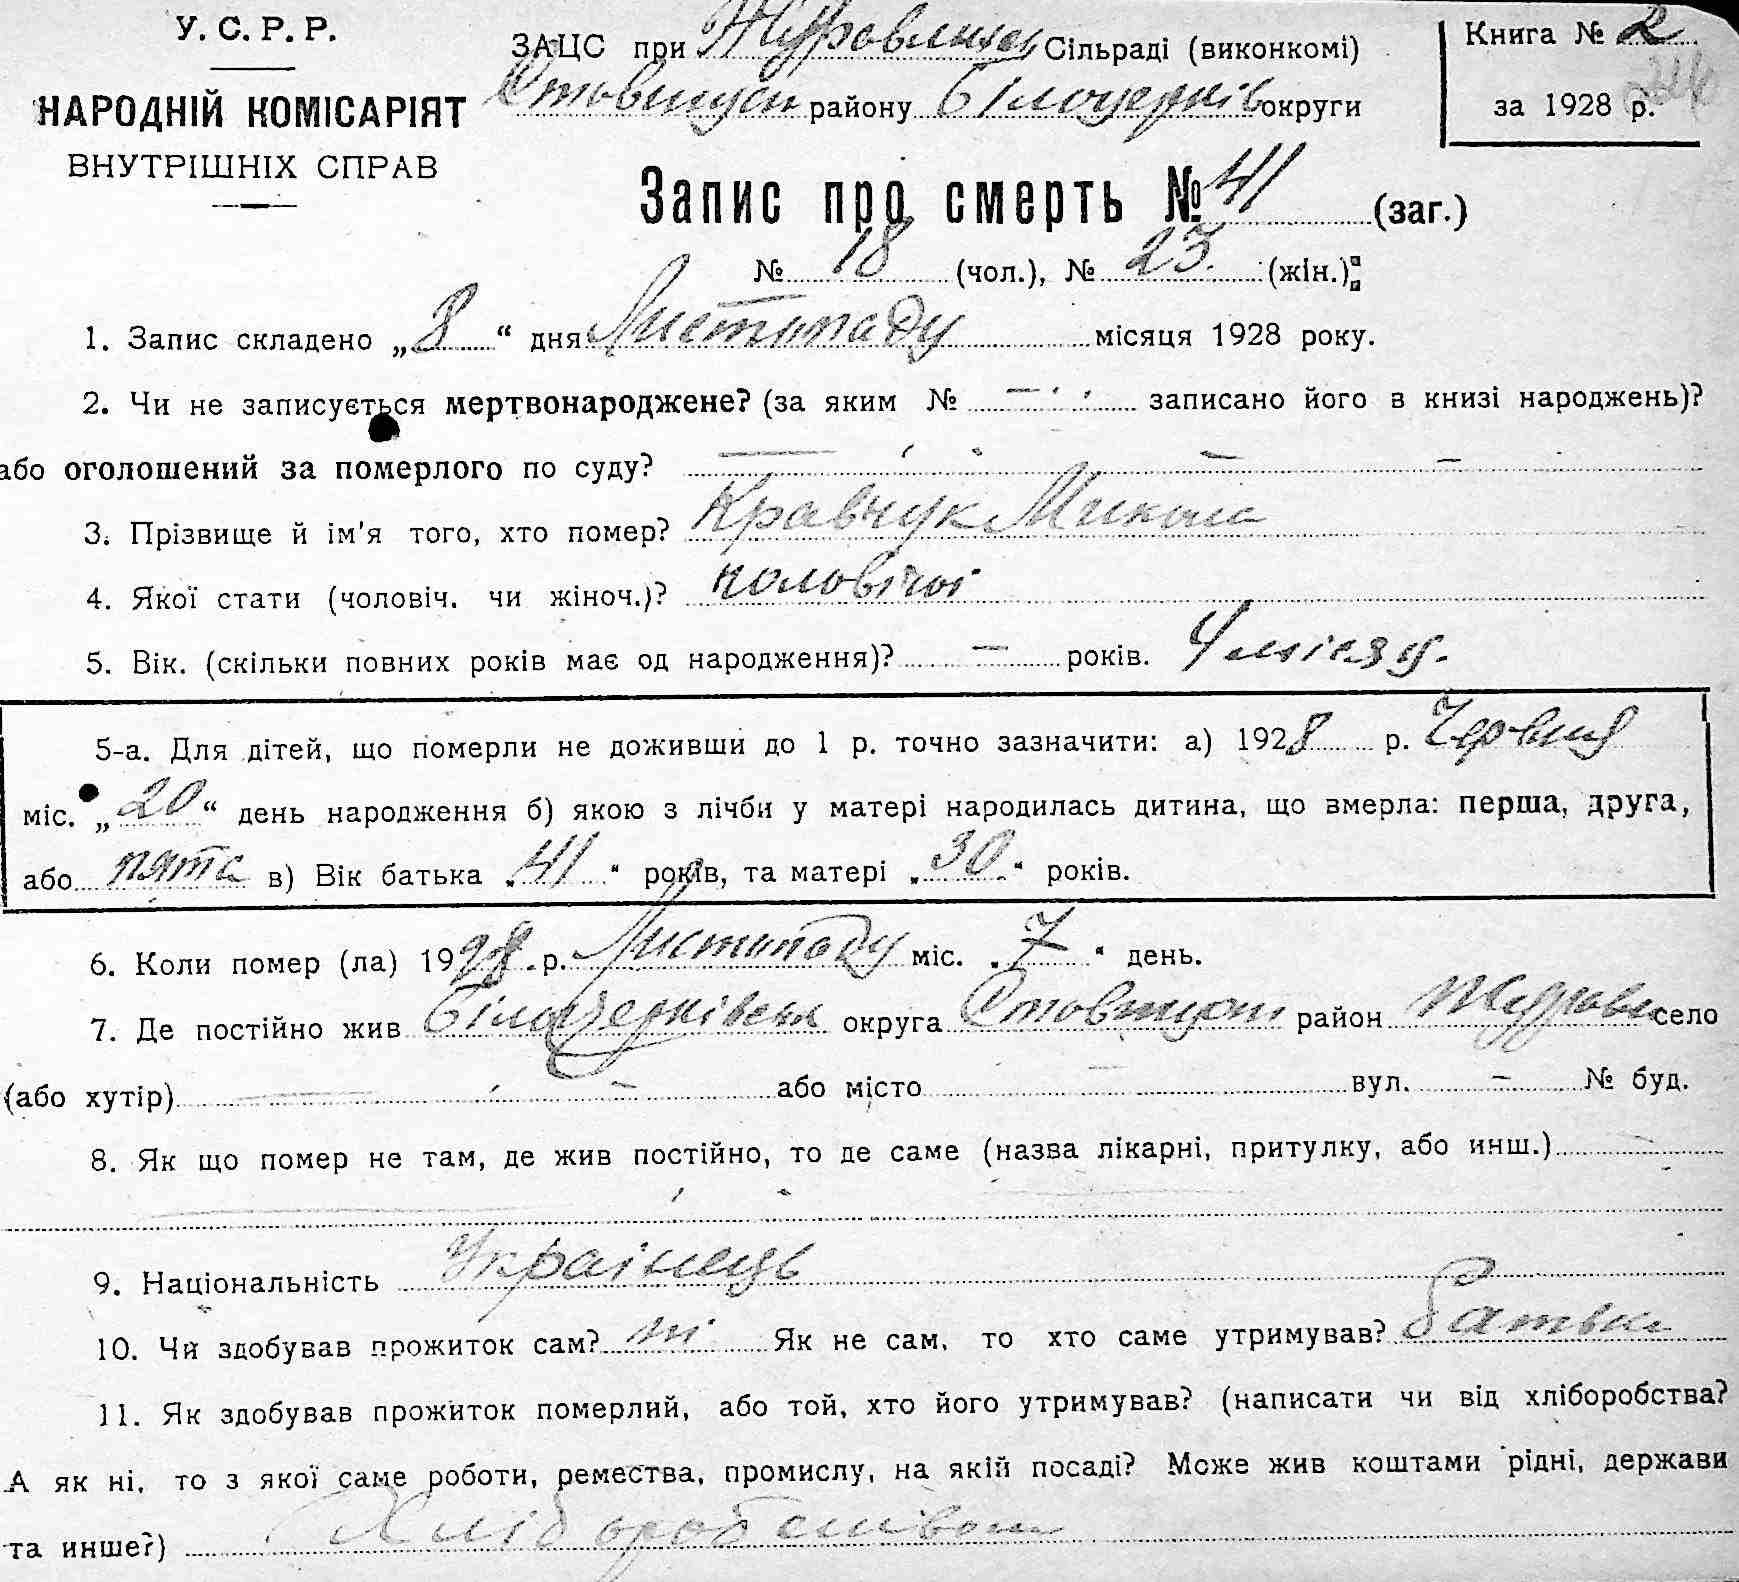 У. С. Р. Р.
НАРОДНІЙ КОМІСАРІЯТ
ВНУТРІШНІХ СПРАВ
ЗАЦС при Журовлинській Сільраді (виконкомі)
району Білоцерків округи
Книга № 2
за 1928 р.
Запис про смерть № 41 (заг.)
№ 18 (чол.), № 23. (жін.);
1. Запис складено „8“ дня Листопаду місяця 1928 року.
2. Чи не записується мертвонароджене? (за яким № — записано його в книзі народжень)?
або оголошений за померлого по суду? —
3. Прізвище й ім'я того, хто помер? Кравчук Микола
4. Якої стати (чоловіч. чи жіноч.)? чоловічої
5. Вік. (скільки повних років має од народження)? — років. 4 місяц.
5-а. Для дітей, що померли не доживши до 1 р. точно зазначити: а) 1928 р. Червня
міс. „20“ день народження б) якою з лічби у матері народилась дитина, що вмерла: перша, друга,
або пята в) Вік батька „41“ років, та матері „30“ років.
6. Коли помер (ла) 1928 р. Листопаду міс. „7“ день.
7. Де постійно жив Білоцерківська округа район село
(або хутір) — або місто — вул. — № буд.
8. Як що помер не там, де жив постійно, то де саме (назва лікарні, притулку, або инш.)
9. Національність Українець
10. Чи здобував прожиток сам? ні Як не сам, то хто саме утримував? батько
11. Як здобував прожиток померлий, або той, хто його утримував? (написати чи від хліборобства?
А як ні, то з якої саме роботи, ремества, промислу, на якій посаді? Може жив коштами рідні, держави
та инше?) Хліборобством